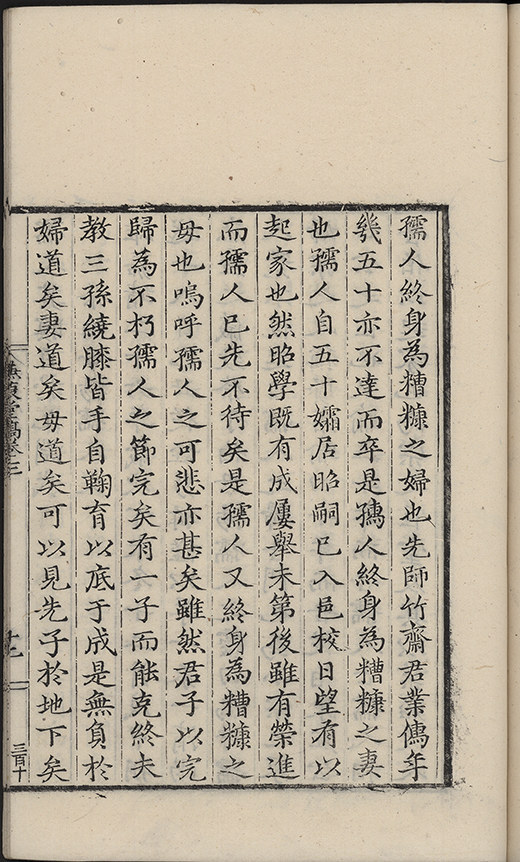 孺人終身為糟糠之婦也先師竹齋君業儁年
幾五十亦不達而卒是孺人終身為糟糠之妻
也孺人自五十孀居昭嗣已入邑校日望有以
起家也然昭學既有成屢舉未第後雖有榮進
而孺人已先不待矣是孺人又終身為糟糠之
母也嗚呼孺人之可悲亦甚矣雖然君子以完
歸為不朽孺人之節完矣有一子而能克終夫
教三孫繞膝皆手自鞠育以底于成是無負於
婦道矣妻道矣母道矣可以見先子於地下矣
堂稿卷三
十二
三百十